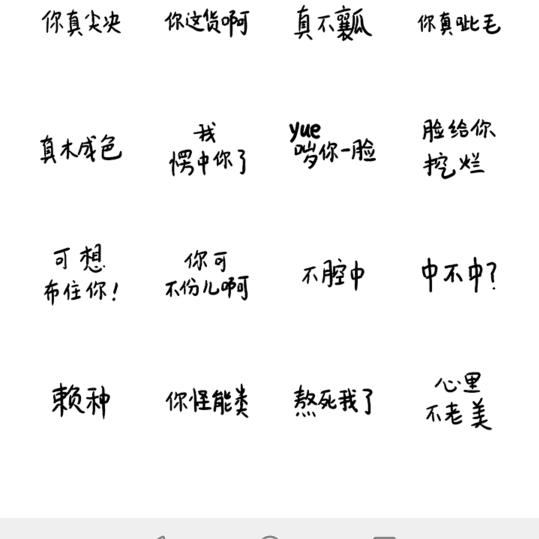 你真尖央
你这货啊
真不瓤
你真呲毛
真木成色
我
愣中你了
yue
哕你一脸
脸给你
挖烂
可想
布住你！
你可
不份儿啊
不腔中
中不中？
赖种
你怪能类
熬死我了
心里
不老美